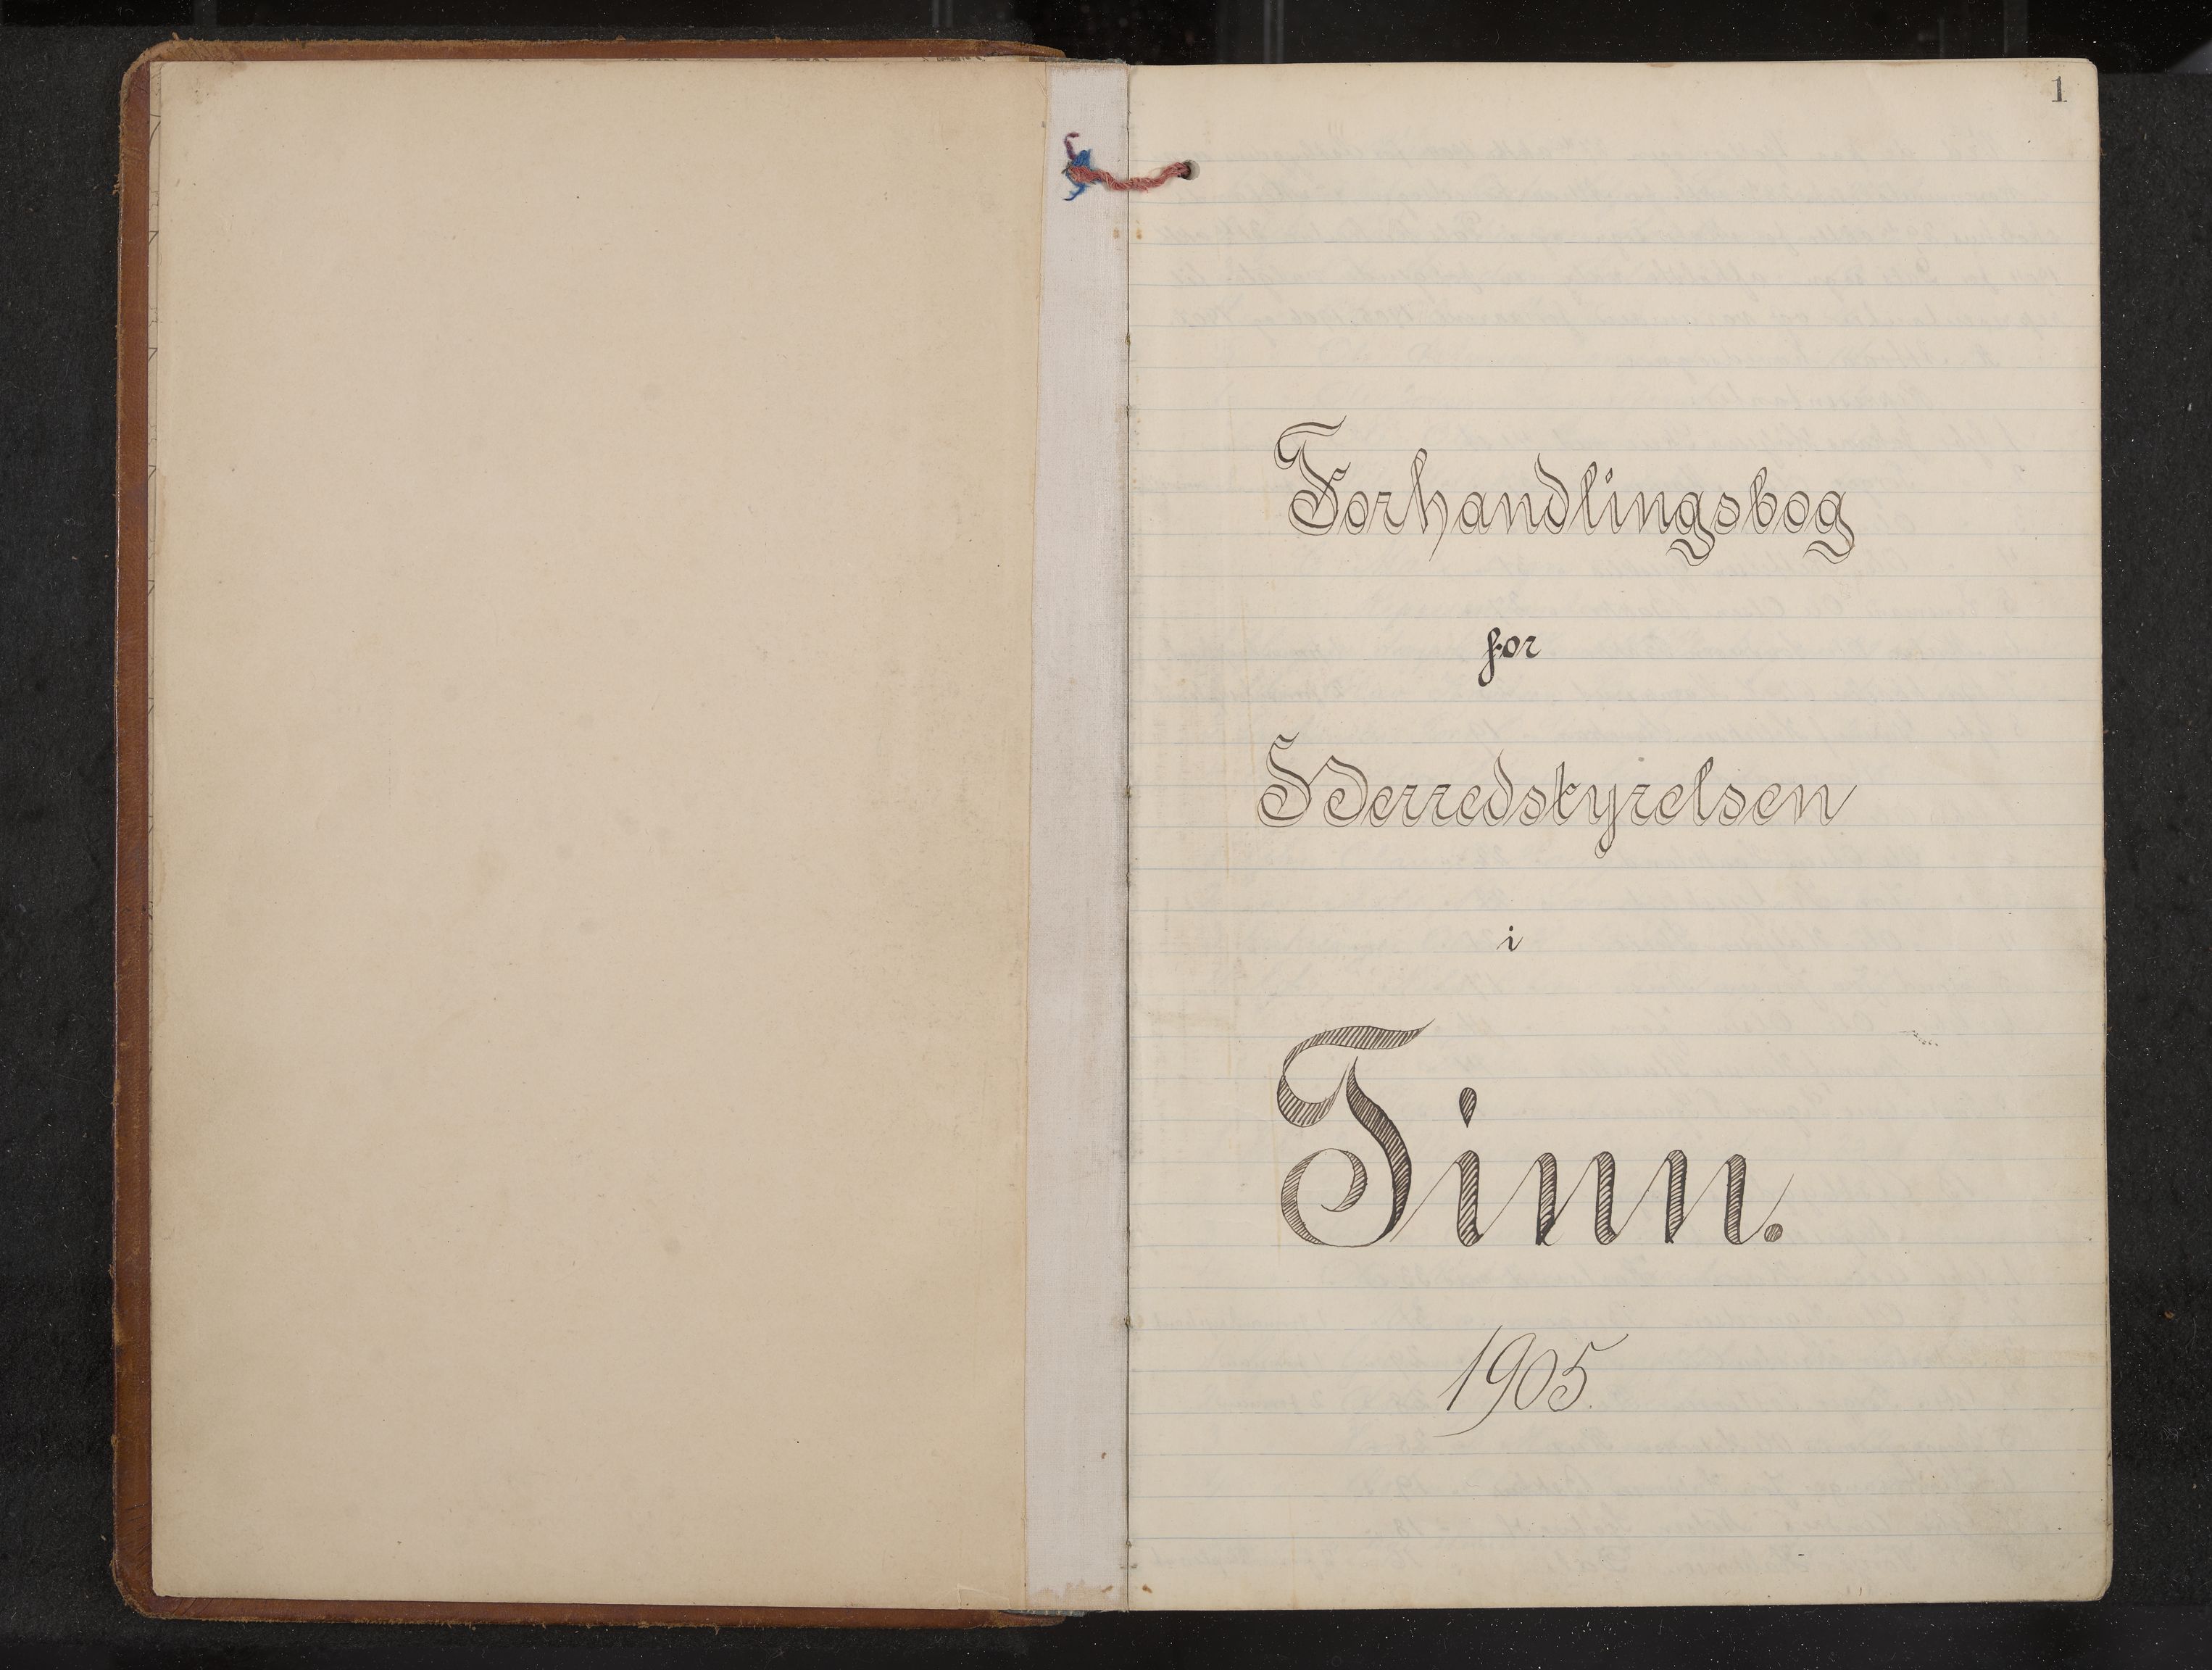 1
Forhandlingsbog
for
Herredstyrelsen
i
Tinn.
1905.